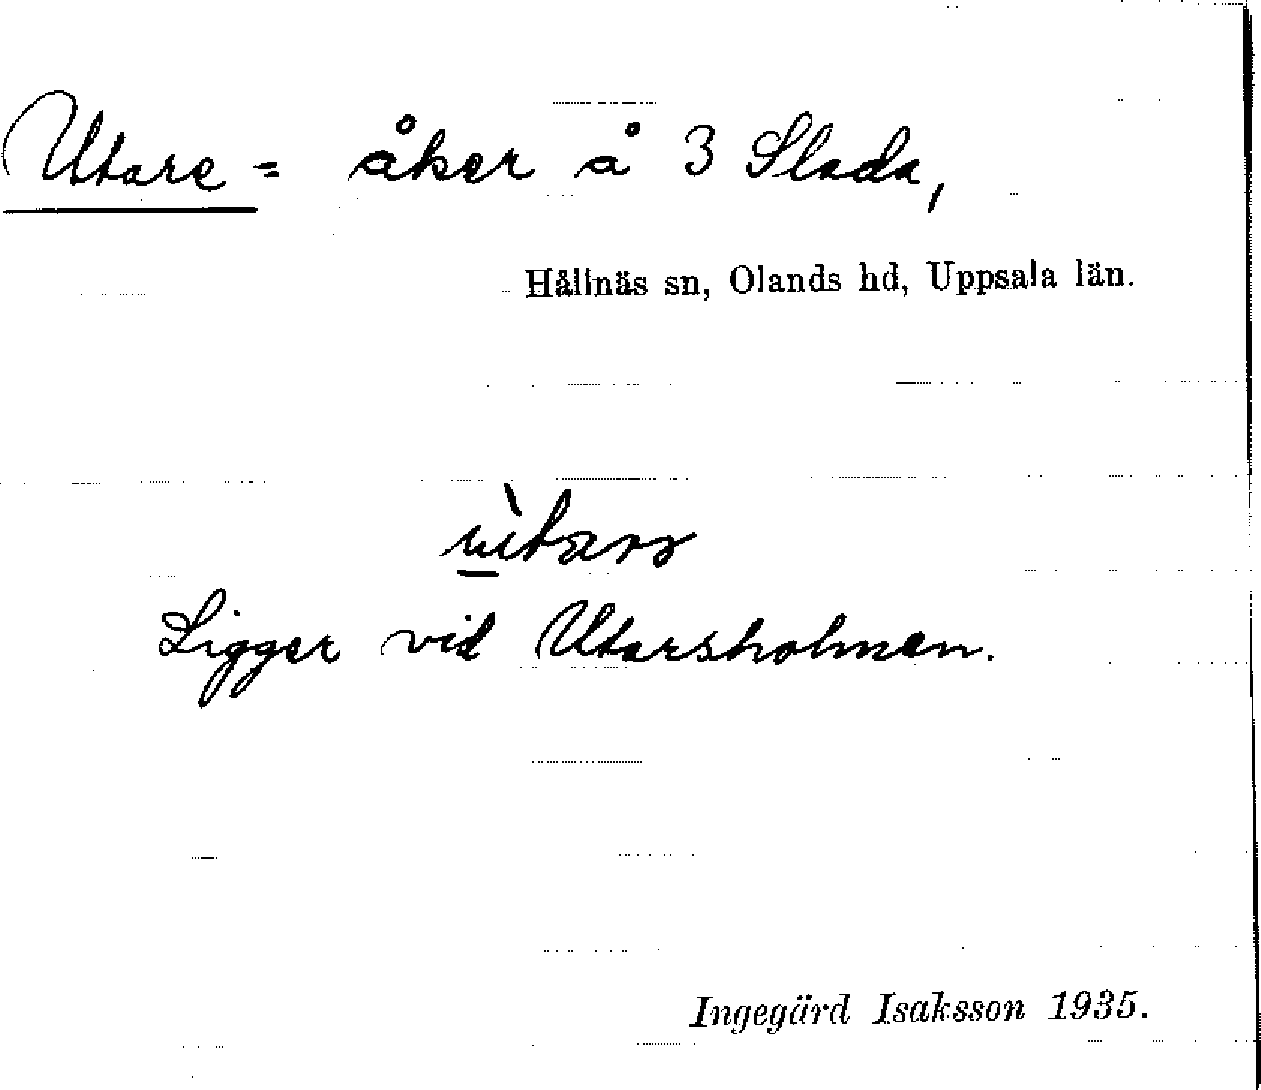 Utare = åker å 3 Slada,
Hållnäs sn, Olands hd, Uppsala län.
Ligger vid Utarsholmen.
Ingegärd Isaksson 1935.